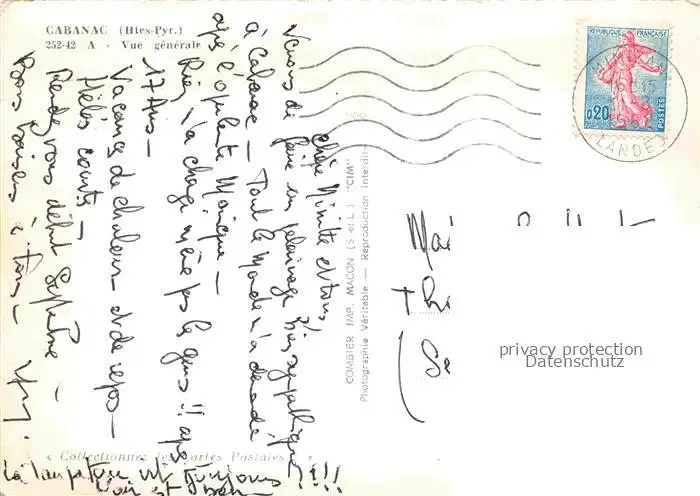 CABANAC (Htes-Pyr.)
252-42 A - Vue générale
Chère Minette et tous!
Venons de faire un pèlerinage très sympathique
à Cabanac — Tout le Monde m'a demandé
après l'opulente Monique —
Rien n'a changé même pas les gens!! après
17 Ans —
Vacances de chaleur et de repos —
Hélas courtes —
Rendez vous début Septembre —
Bons baisers à tous —
« Collectionnez les Cartes Postales »
La température est toujours
!!!!
COMBIER IMP. MACON (S.-et-L.) "CIM"
Photographie Véritable — Reproduction Interdite
REPUBLIQUE FRANÇAISE
0,20
POSTES
LANDES
privacy protection
Datenschutz